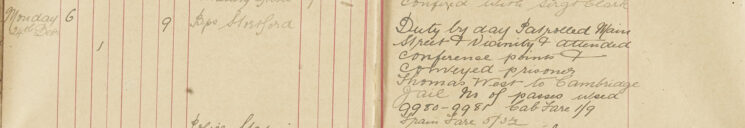 Conferd with Sergt Clark
Monday 6 9 Bps Stortford
24th Dec
1
Duty by day Patrolled Main
Street & Vicinity & attended
Conference points &
Conveyed prisoner
Thomas West to Cambridge
Jail No of passes used
9980-9981 Cab Fare 1/9
Train Fare